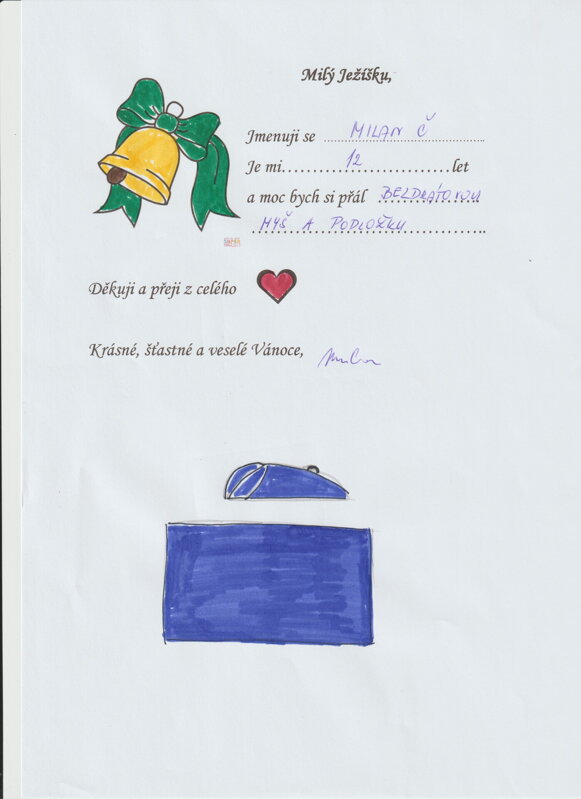 Milý Ježíšku,
Jmenuji se MILAN Č
Je mi 12 let
a moc bych si přál BEZDRÁTOVOU
MYŠ A PODLOŽKU
Děkuji a přeji z celého
Krásné, šťastné a veselé Vánoce,
Milan